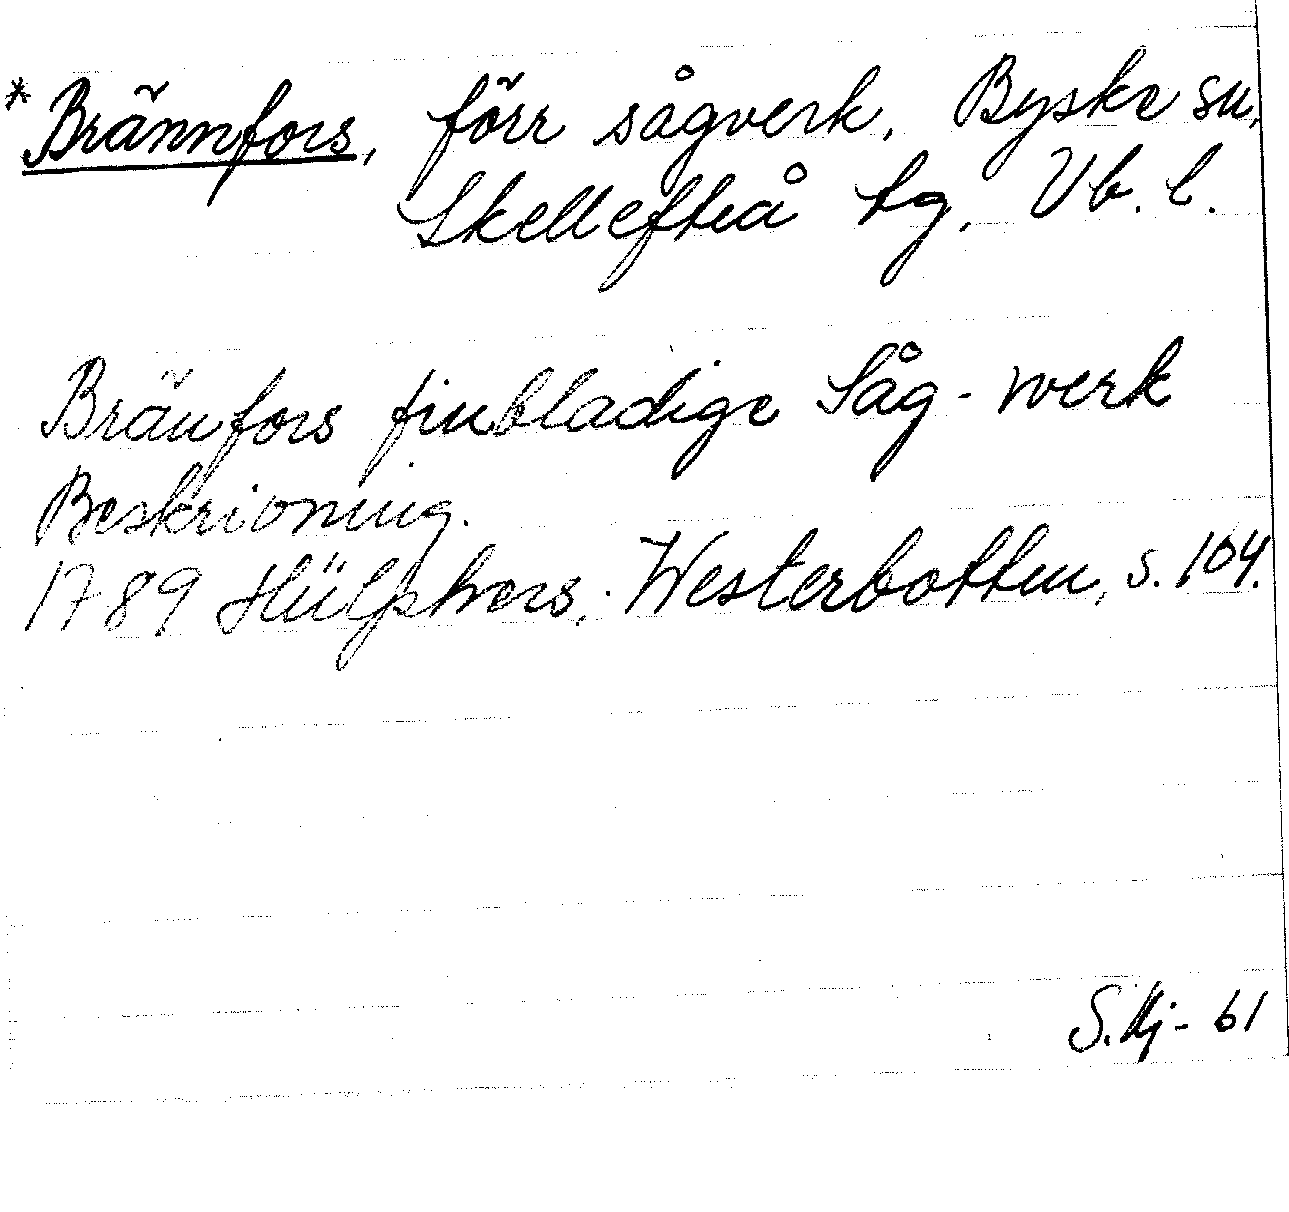 *Brännfors, förr sågverk, Byske sn,
Skellefteå tg, Vb. l.
Bränfors finbladige Såg-werk
Beskrivning.
1789 Hülphers, Westerbotten, s. 104.
S. Hj - 61